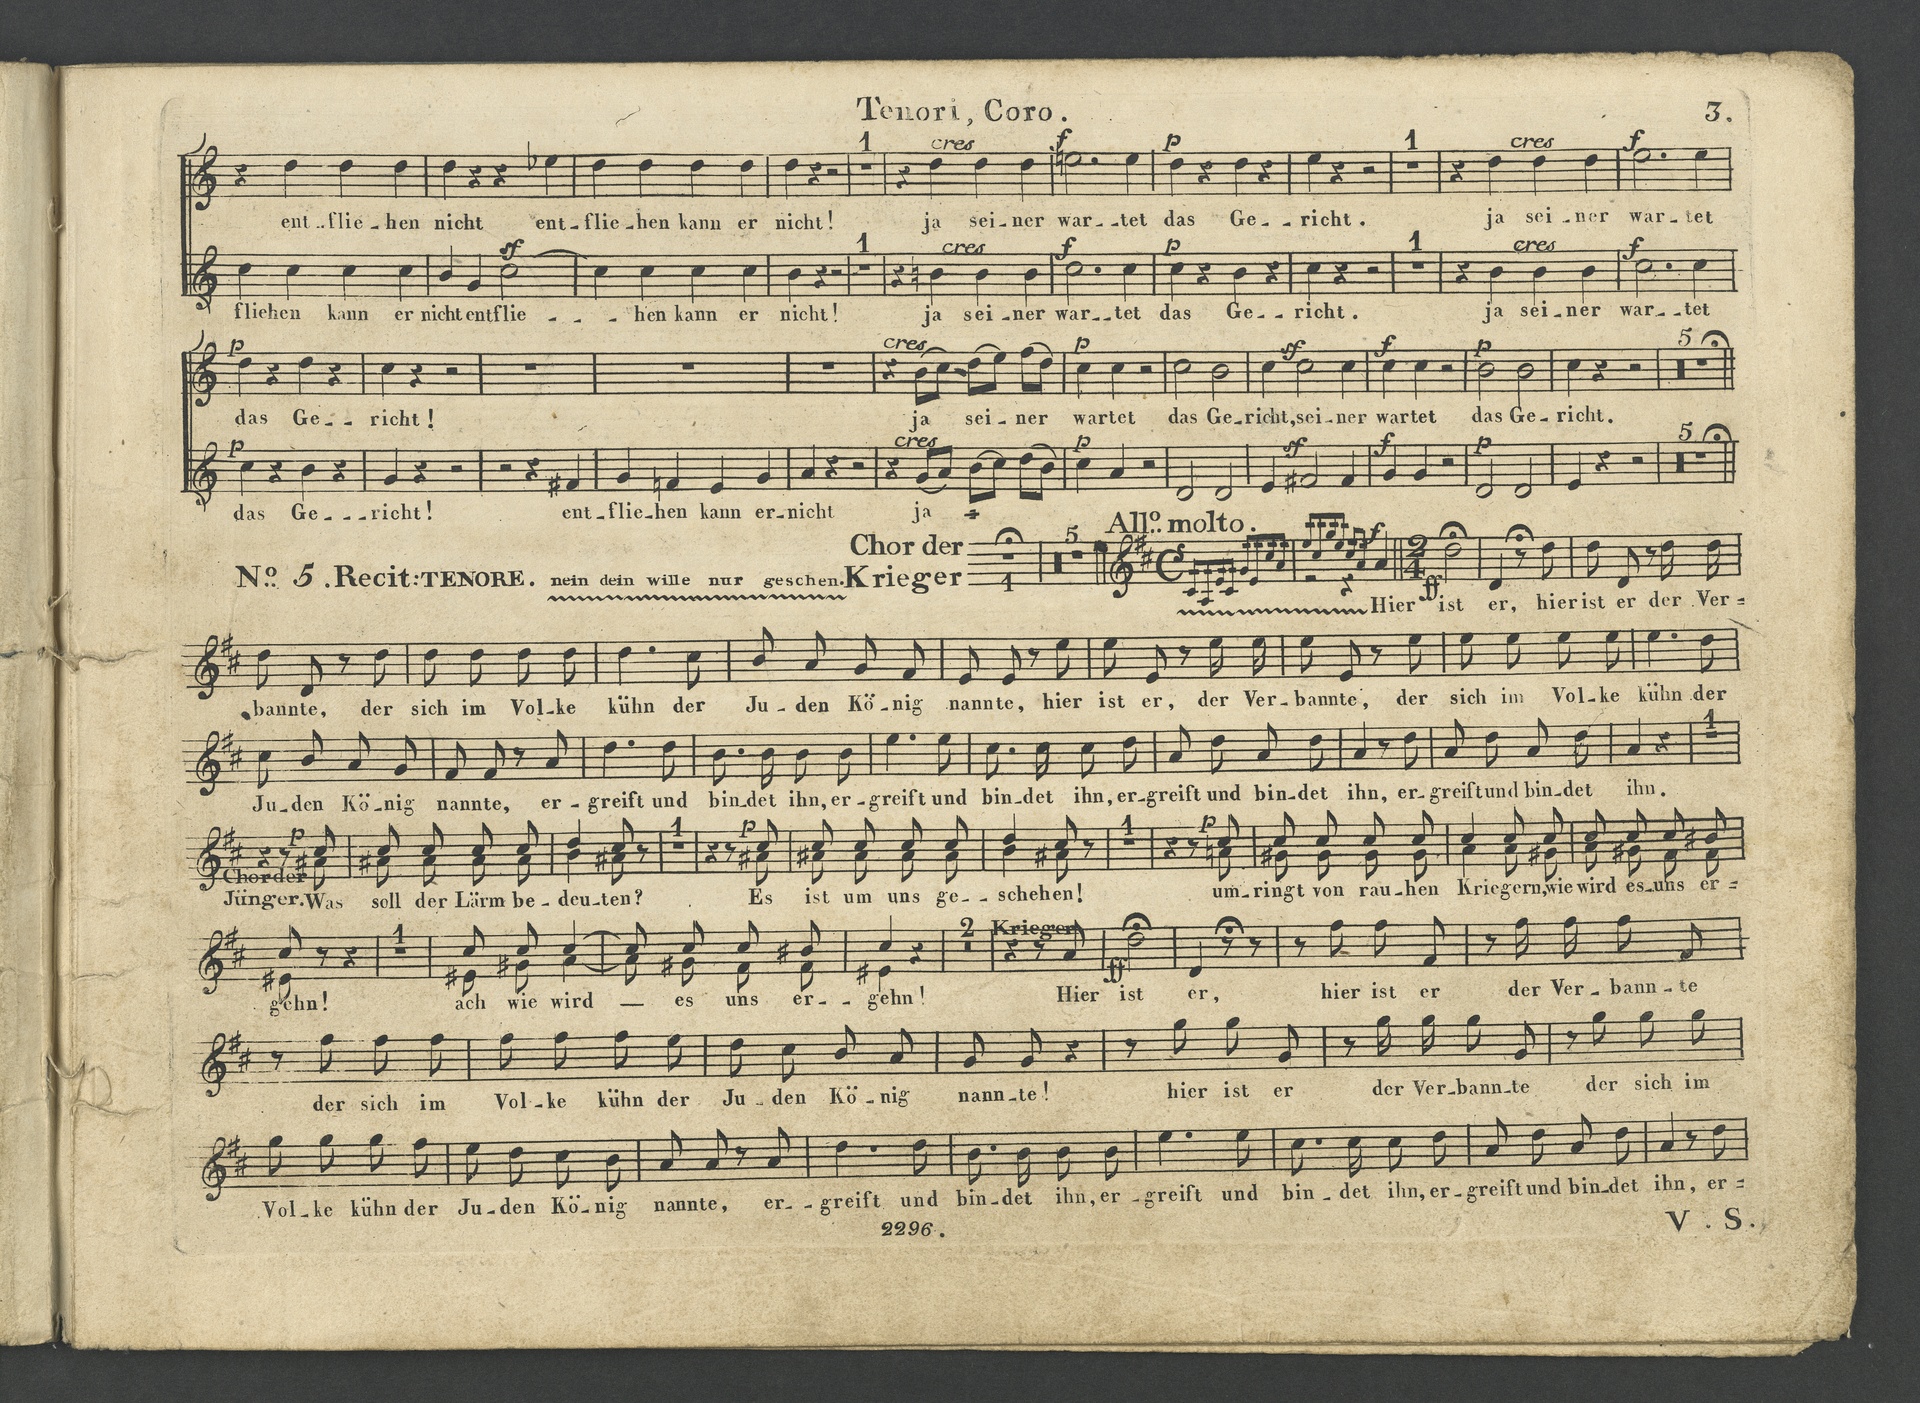 Tenori, Coro.
3.
1 cres f p 1 cres f
ent..flie-hen nicht ent-flie-hen kann er nicht! ja sei-ner war--tet das Ge--richt. ja sei-ner war--tet
sf 1 cres f p 1 cres f
fliehen kann er nicht entflie - - - hen kann er nicht! ja sei-ner war--tet das Ge--richt. ja sei-ner war--tet
p cres p sf f p 5
das Ge--richt! ja sei-ner wartet das Ge-richt, sei-ner wartet das Ge-richt.
p cres p sf f p 5
das Ge---richt! ent-flie-hen kann er-nicht ja
All.o molto.
Chor der 5
No. 5. Recit: TENORE. nein dein wille nur geschen. Krieger 1 f 2 4 ff
Hier ist er, hier ist er der Ver=
bannte, der sich im Vol-ke kühn der Ju-den Kö-nig nannte, hier ist er, der Ver-bannte, der sich im Vol-ke kühn der
1
Ju-den Kö-nig nannte, er-greift und bin-det ihn, er-greift und bin-det ihn, er-greift und bin-det ihn, er-greift und bin-det ihn.
p 1 p 1 p
Chor der
Jünger. Was soll der Lärm be-deu-ten? Es ist um uns ge--schehen! um-ringt von rau-hen Kriegern, wie wird es-uns er=
1 2 Krieger ff
gehn! ach wie wird — es uns er--gehn! Hier ist er, hier ist er der Ver-bann-te
der sich im Vol-ke kühn der Ju-den Kö-nig nann-te! hier ist er der Ver-bann-te der sich im
Vol-ke kühn der Ju-den Kö-nig nannte, er--greift und bin-det ihn, er-greift und bin-det ihn, er-greift und bin-det ihn, er=
2296.
V. S.